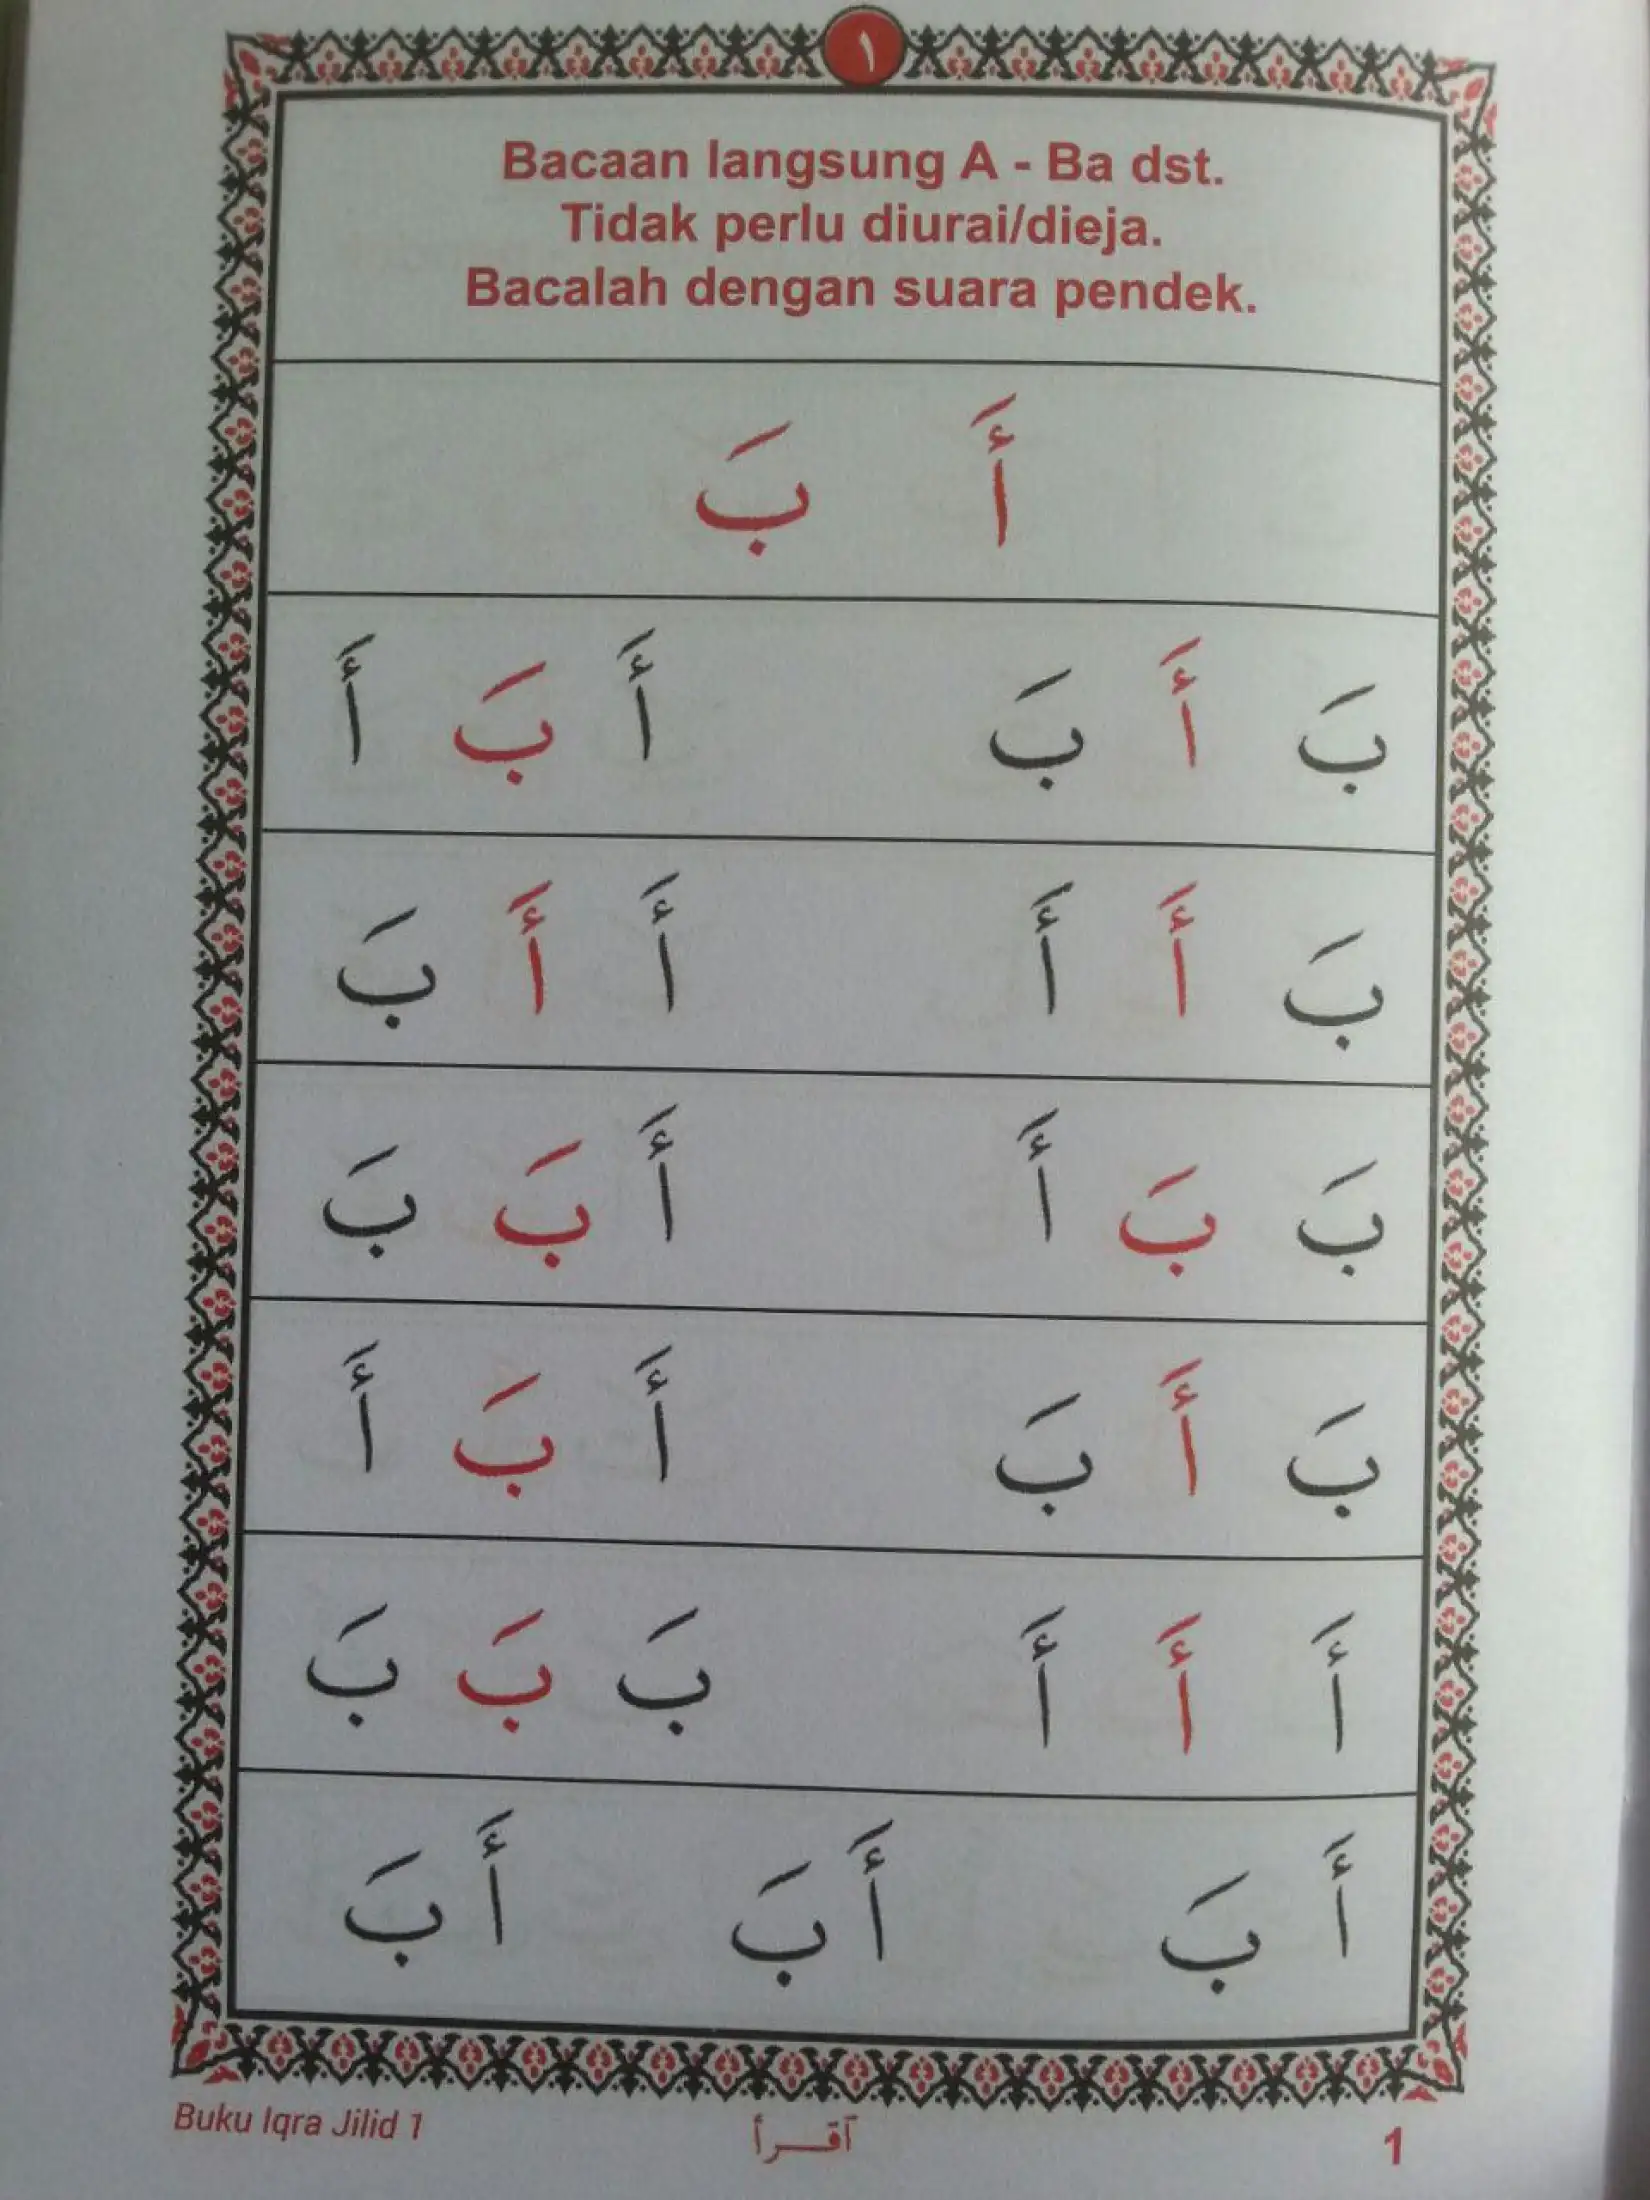 ١
Bacaan langsung A - Ba dst.
Tidak perlu diurai/dieja.
Bacalah dengan suara pendek.
أَ بَ
بَ أَ بَ أَ بَ أَ
بَ أَ أَ أَ أَ بَ
بَ بَ أَ أَ بَ بَ
بَ أَ بَ أَ بَ أَ
أَ أَ أَ بَ بَ بَ
أَ بَ أَ بَ أَ بَ
Buku Iqra Jilid 1
آقـــرأ
1